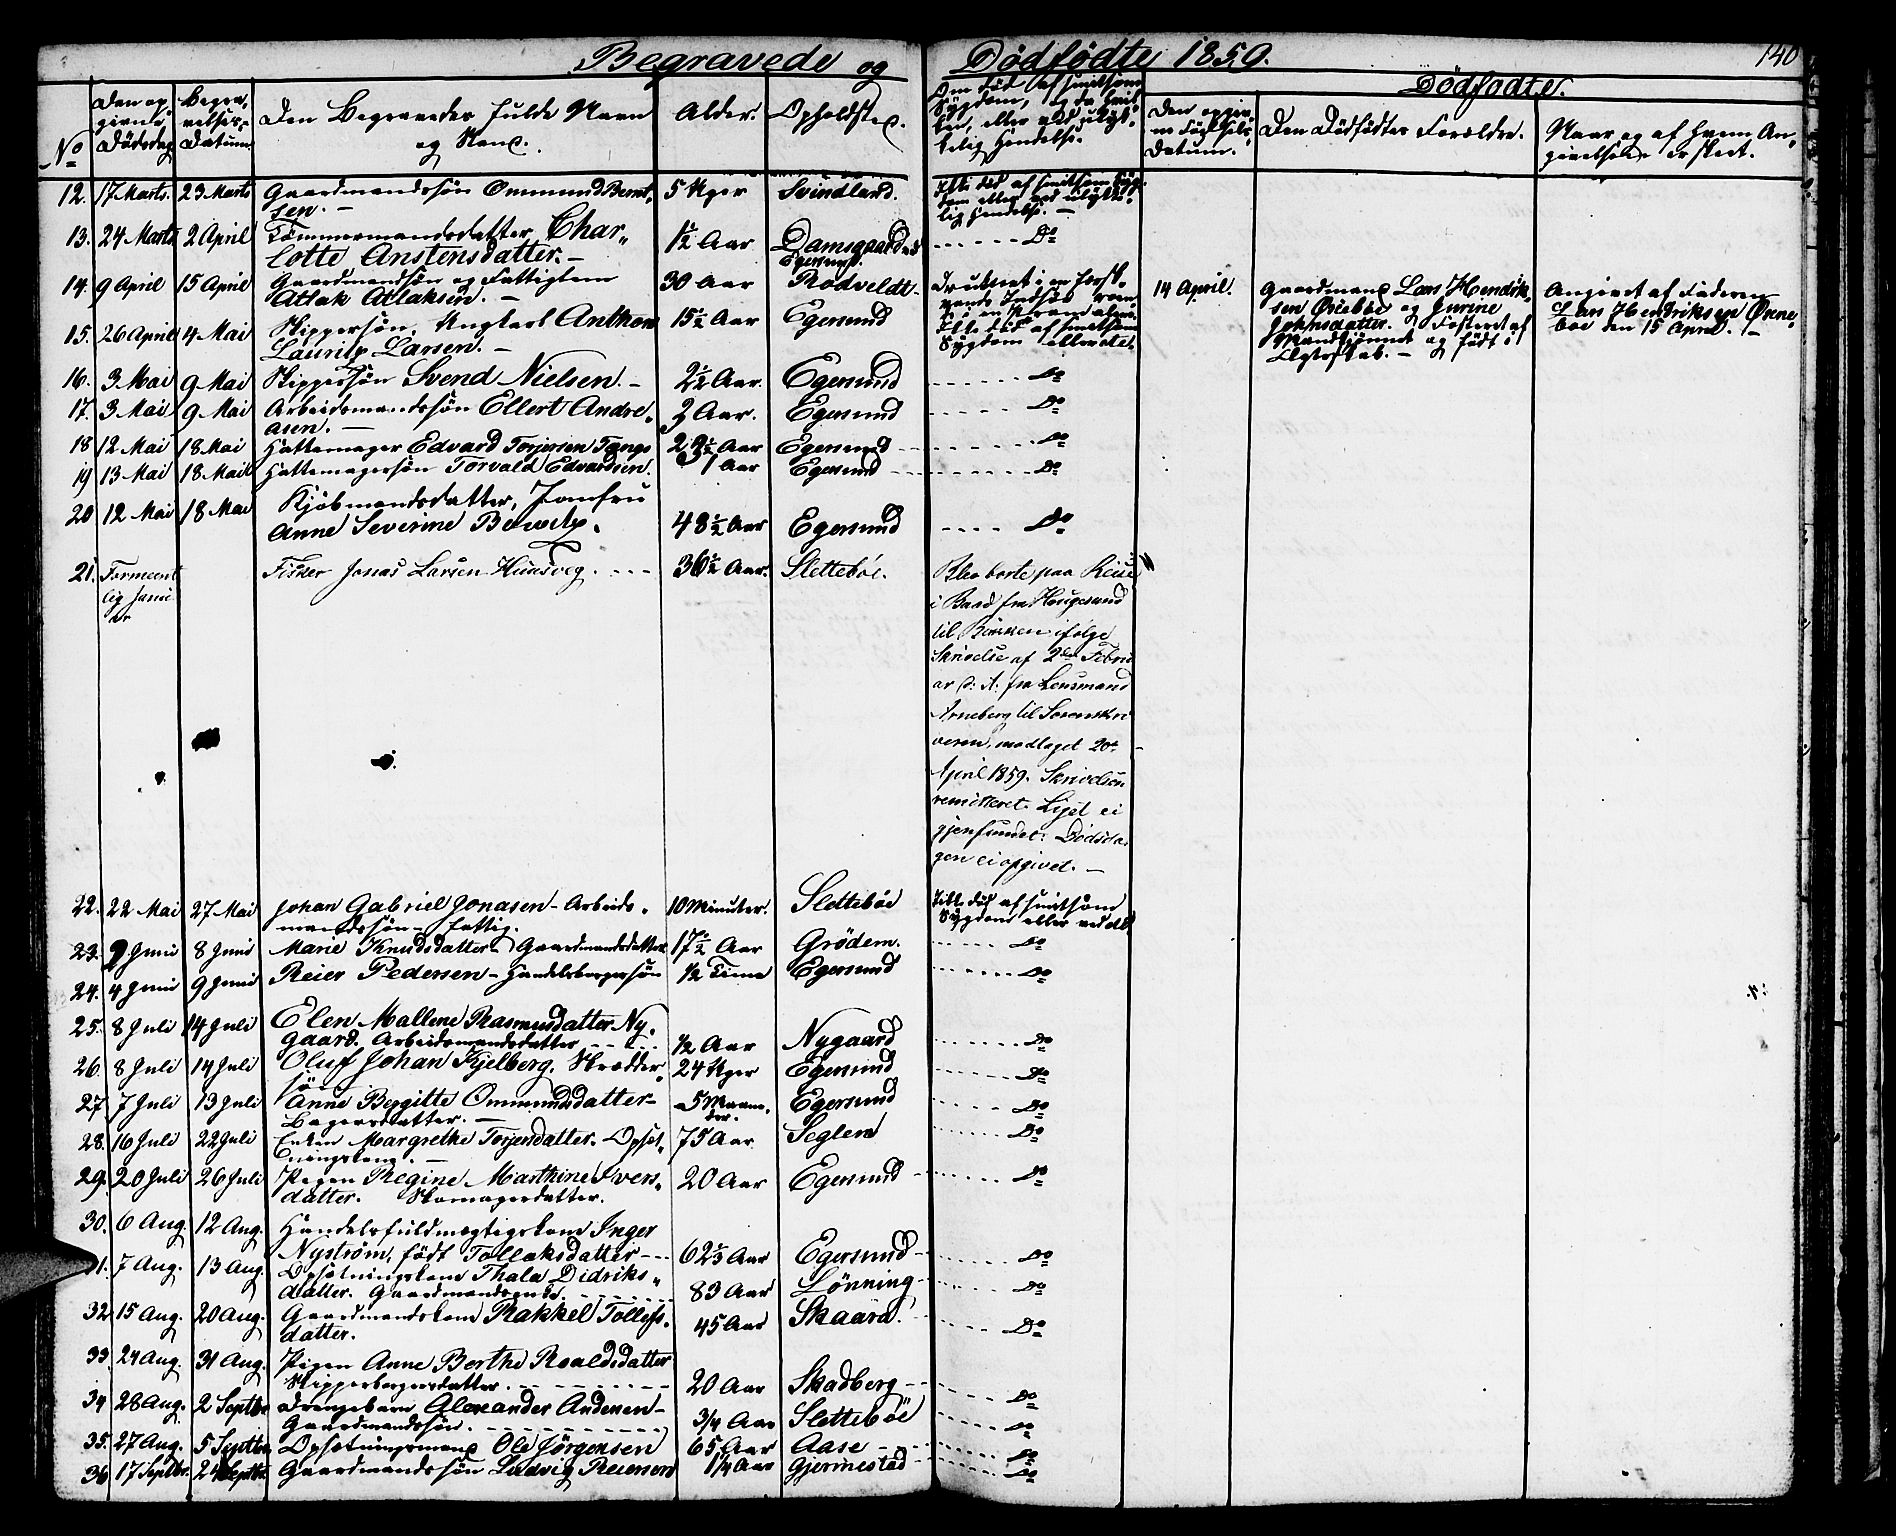 Begravede og Dødfødte 1859.
140
No
Den opgivne Dødsdag
Begravelses-Datum.
Den Begravedes fulde Navn og Stand.
Alder.
Opholdsted.
Om død af smitsom Sygdom, og da hvilken, eller ved ulykkelig Hendelse.
Dødfødte.
Den opgivne Fødsels-Datum.
Den Dødfødtes Forældre.
Naar og af hvem Angivelsen er skeet.
12. 17 Marts. 23 Marts Gaardmandssøn Ommund Berntsen. – 5 Uger Svindland. Ikke død af smitsom Sygdom eller ved ulykkelig Hendelse. –
13. 24 Marts 2 April Tømmermandsdatter Charlotte Anstensdatter. – 1½ Aar Damsgaard ved Egersund. Do
14. 9 April 15 April Gaardmandssøn og Fattiglem Atlak Atlaksen. – 30 Aar Rødveldt Druknet i en
14 April. Gaardmand Lars Hendriksen Ørebøe og Jurine Johnsdatter. Fosteret af Mandkjønnet og født i Ægteskab. – Angivet af Faderen Lars Hendriksen Ørnebøe den 15 April. –
15. 26 April 4 Mai Skippersøn, Ungkarl Anthon Lauritz Larsen. – 15½ Aar Egersund Ikke død af smitsom Sygdom eller videre
16. 3 Mai 9 Mai Skippersøn Svend Nielsen. – 2½ Aar. Egersund Do
17. 3 Mai 9 Mai Arbeidsmandssøn Ellert Andreasen. – 3 Aar. Egersund Do
18 12 Mai 18 Mai Hattemager Edvard Torjersen Tengs 29½ Aar Egersund Do
19 13 Mai 18 Mai Hattemagersøn Torvald Edvardsen. 1 Aar Egersund Do
20 12 Mai 18 Mai Kjøbmandsdatter, Jomfru Anne Severine 48½ Aar Egersund Do
21. Formeentlig Janu- Fisker Jonas Larsen Huusveg. 36½ Aar. Slettebøe. Blev borte paa Reise
i Baad fra Hougesund
til ifølge
Skrivelse af 2den Febru
ar d: A: fra Lensmand
Arneberg til Sorenskri
veren, modtaget 20de
April 1859. Skrivelsen
remitteret. Liget ei
gjenfundet. Dødsda
gen ei opgivet. –
22. 22 Mai 27 Mai Johan Gabriel Jonasen – Arbeidsmandssøn – fattig. 10 Minuter. Slettebøe Ikke død af smitsom Sygdom eller ved dl.
23. 2 Juni 8 Juni Marie Knudsdatter – Gaardmandsdatter 17½ Aar Grødem. Do
24. 4 Juni 9 Juni Reier Pedersen – Handelsborgersøn ½ Time Egersund Do
25. 8 Juli 14 Juli Elen Mallene Rasmusdatter Nygaard. Arbeidsmandsdatter ½ Aar Nygaard Do
26. 8 Juli 14 Juli Oluf Johan Kjelberg. Skræddersøn 24 Uger Egersund Do
27. 7 Juli 13 Juli Anne Bergitte Ommundsdatter – Bagersdatter. – 5 Maaneder. Egersund Do
28. 16 Juli 22 Juli Enken Margrethe Torjersdatter. Opsætningskone. – 75 Aar Seglem Do
29. 20 Juli 26 Juli Pigen Regine Marthine Iversdatter. Skomagerdatter. 20 Aar Egersund Do
30. 6 Aug. 12 Aug. Handelsfuldmægtigskone Inger Nystrøm, født Tollaksdatter 62⅓ Aar Egersund Do
31. 7 Aug. 13 Aug. Opsætningskone Thala Didriksdatter. Gaardmandsenke. 83 Aar Lønning Do
32 15 Aug. 20 Aug. Gaardmandskone Rakkel Tollefsdatter. 45 Aar Skaara. Do
33. 24 Aug. 31 Aug. Pigen Anne Berthe Roaldsdatter Skipperborgersdatter. 20 Aar Skadberg Do
34 28 Aug. 2 Septbr Drengebarn Alexander Andersen – Gaardmandssøn. 3/4 Aar Slettebøe Do
35. 27 Aug. 5 Septbr Opsætningsmand Ole Jørgensen 65 Aar Aase Do
36 17 Septbr. 24 Septbr Gaardmandssøn Ludvig Reiersen 1/4 Aar Gjermestad Do